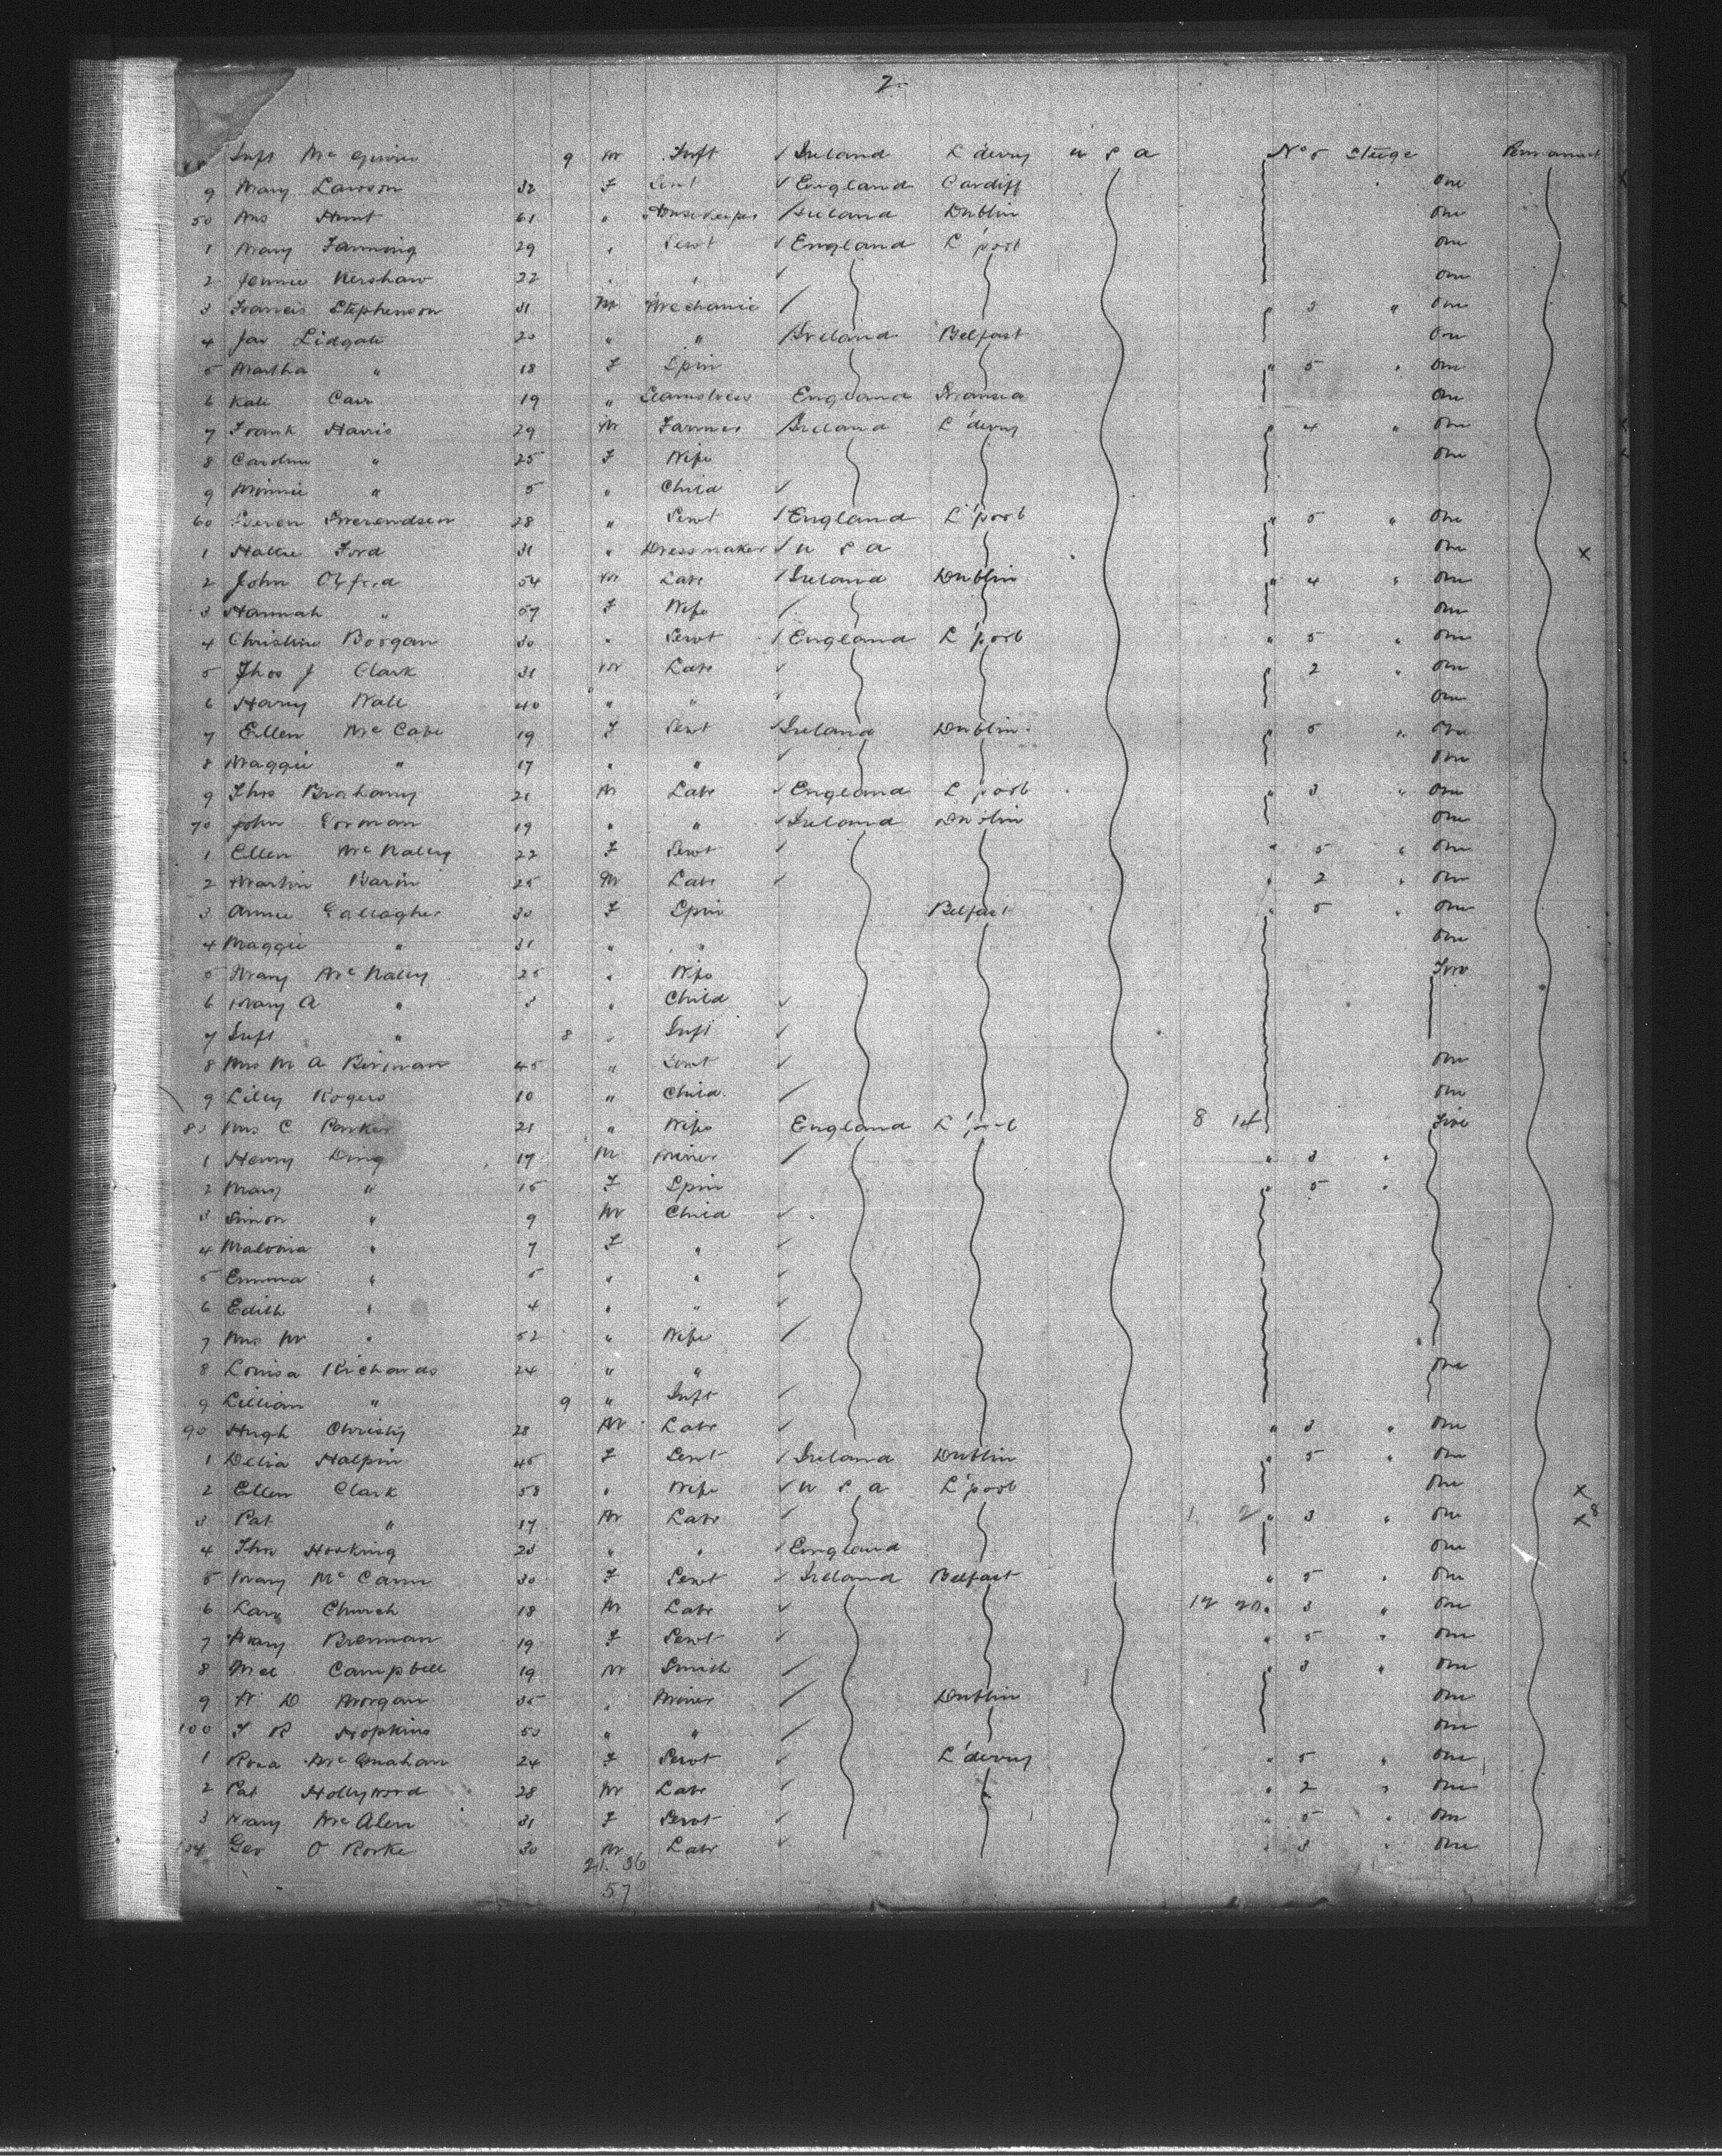 2
Inft Mc 9 M Inft Ireland L'derry U S A No 5 Steege Permanent
9 Mary Lawson 32 F Servt England Cardiff One
50 Ans Hunt 61 " Housekeeper Ireland Dublin One
1 Mary Fanning 29 " Servt England L'pool One
2 Jennie Kershaw 22 " " One
3 Francis Stephenson 31 M Mechanic " 3 " One
4 Jas Lidgate 20 " " Ireland Belfast One
5 Martha " 18 F Spin " 5 " One
6 Kate Carr 19 " Seamstress England Swansea One
7 Frank Harris 29 M Farmer Ireland L'derry " 4 " One
8 Caroline " 25 F Wife One
9 Minnie " 5 " Child
60 Swerendsen 28 " Servt England L'pool " 5 " One
1 Hattie Ford 31 " Dressmaker U S A One x
2 John 54 M Labr Ireland Dublin " 4 " One
3 Hannah " 57 F Wife One
4 Christine Borgan 30 " Servt England L'pool " 5 " One
5 Thos J Clark 31 M Labr " 2 " One
6 Harry Wall 40 " " One
7 Ellen McCabe 19 F Servt Ireland Dublin " 5 " One
8 Maggie " 17 " " One
9 Thos 21 M Labr England L'pool " 3 " One
70 John Gorman 19 " " Ireland Dublin One
1 Ellen McNally 22 F Servt " 5 " One
2 Martin 25 M Labr " 2 " One
3 Annie Gallagher 30 F Spin Belfast " 5 " One
4 Maggie " 31 " " One
5 Mary McNally 25 " Wife Two
6 Mary A " 3 " Child
7 Inft " 8 " Inft
8 Mrs M A 45 " Servt One
9 Lilly Rogers 10 " Child One
80 Mrs C Parker 21 " Wife England L'pool 8 14 Five
1 Henry 17 M Miner " 3 "
2 Mary " 15 F Spin " 5 "
3 Simon " 9 M Child
4 Malvina " 7 F "
5 Emma " 5 " "
6 Edith " 4 " "
7 Mrs M " 52 " Wife
8 Louisa Richards 24 " " One
9 Lillian " 9 " Inft
90 Hugh Christy 28 M Labr " 3 " One
1 Delia Halpin 45 F Servt Ireland Dublin " 5 " One
2 Ellen Clark 58 " Wife U S A L'pool One x
3 Pat " 17 M Labr 1 2 " 3 " One x 8
4 Thos Hosking 23 " " England One
5 Mary McCann 30 F Servt Ireland Belfast " 5 " One
6 Church 18 M Labr 12 20 " 3 " One
7 Mary Brennan 19 F Servt " 5 " One
8 Campbell 19 M Smith " 3 " One
9 W D Morgan 35 " Miner Dublin One
100 T R Hopkins 50 " " One
1 Rosa 24 F Servt L'derry " 5 " One
2 Pat Hollywood 28 M Labr " 2 " One
3 Mary McAlen 31 F Servt " 5 " One
104 Geo O Rorke 30 M Labr " 3 " One
21. 36
57